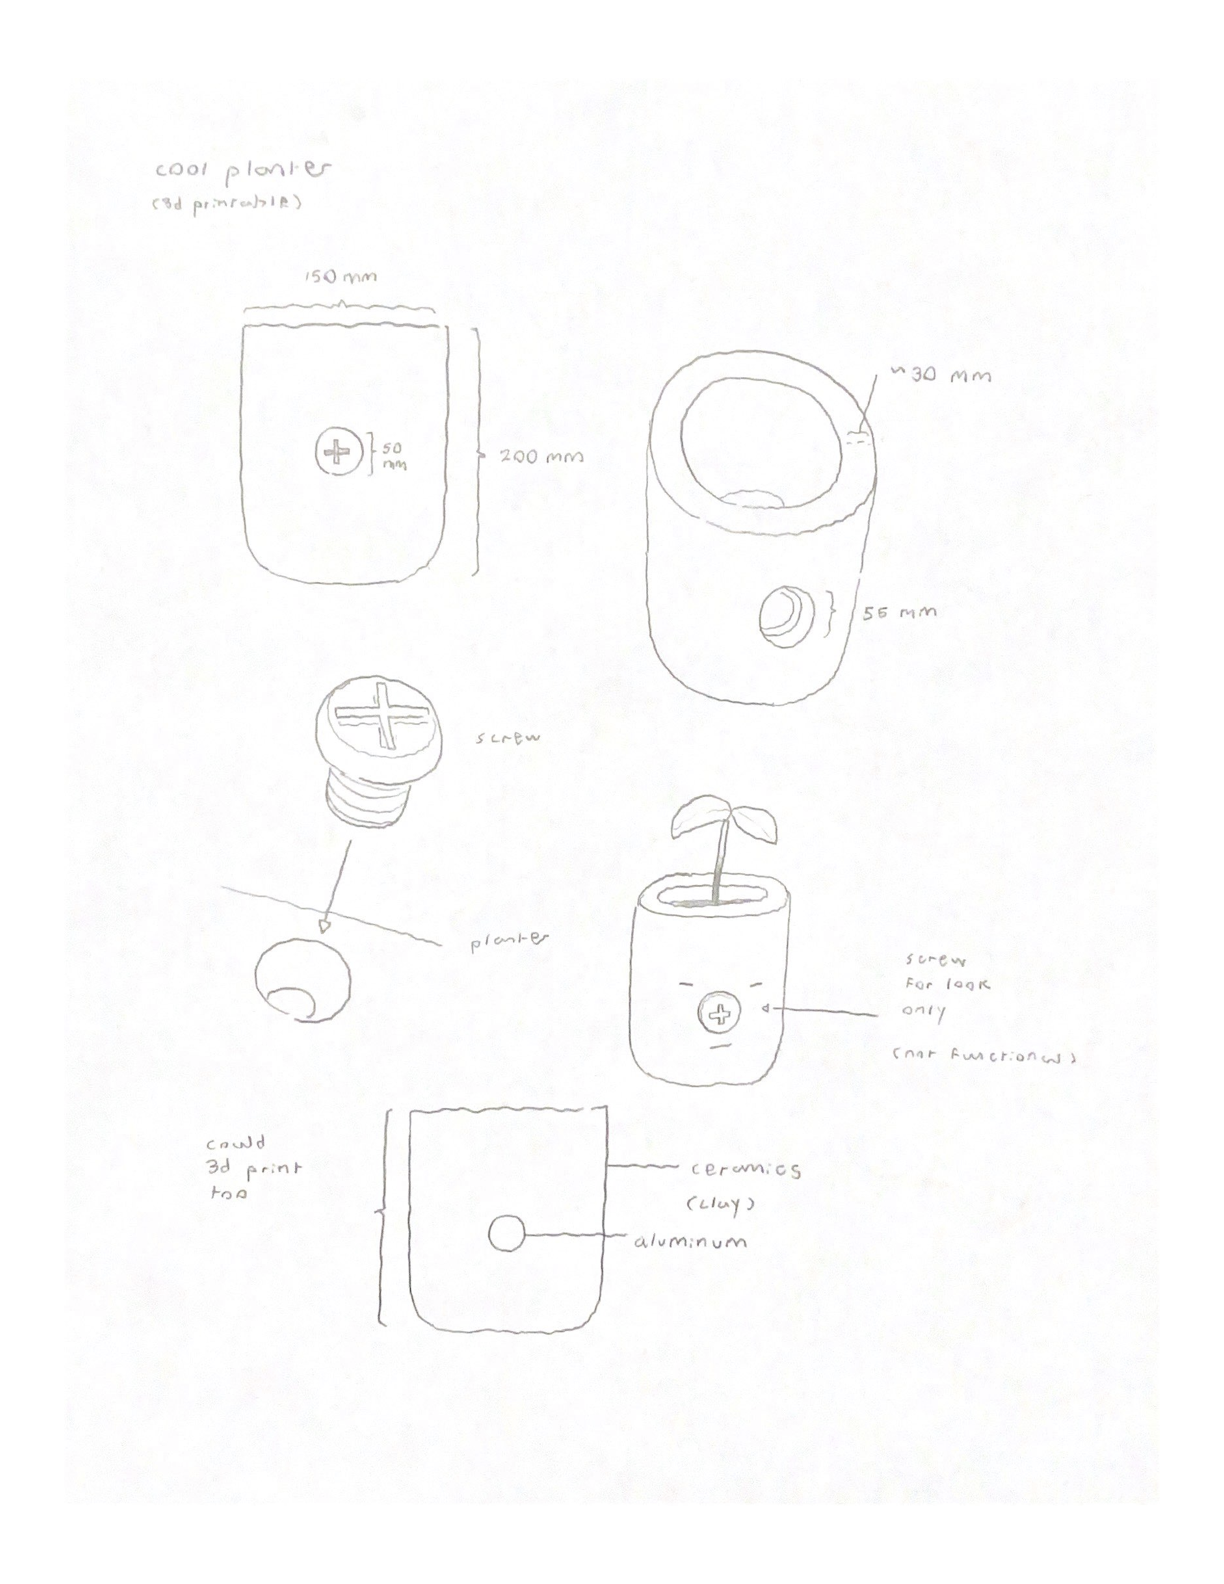 cool planter
(3d printable)
150 mm
50
mm
200 mm
~30 mm
55 mm
screw
planter
screw
for look
only
(not functional)
could
3d print
too
ceramics
(clay)
aluminum